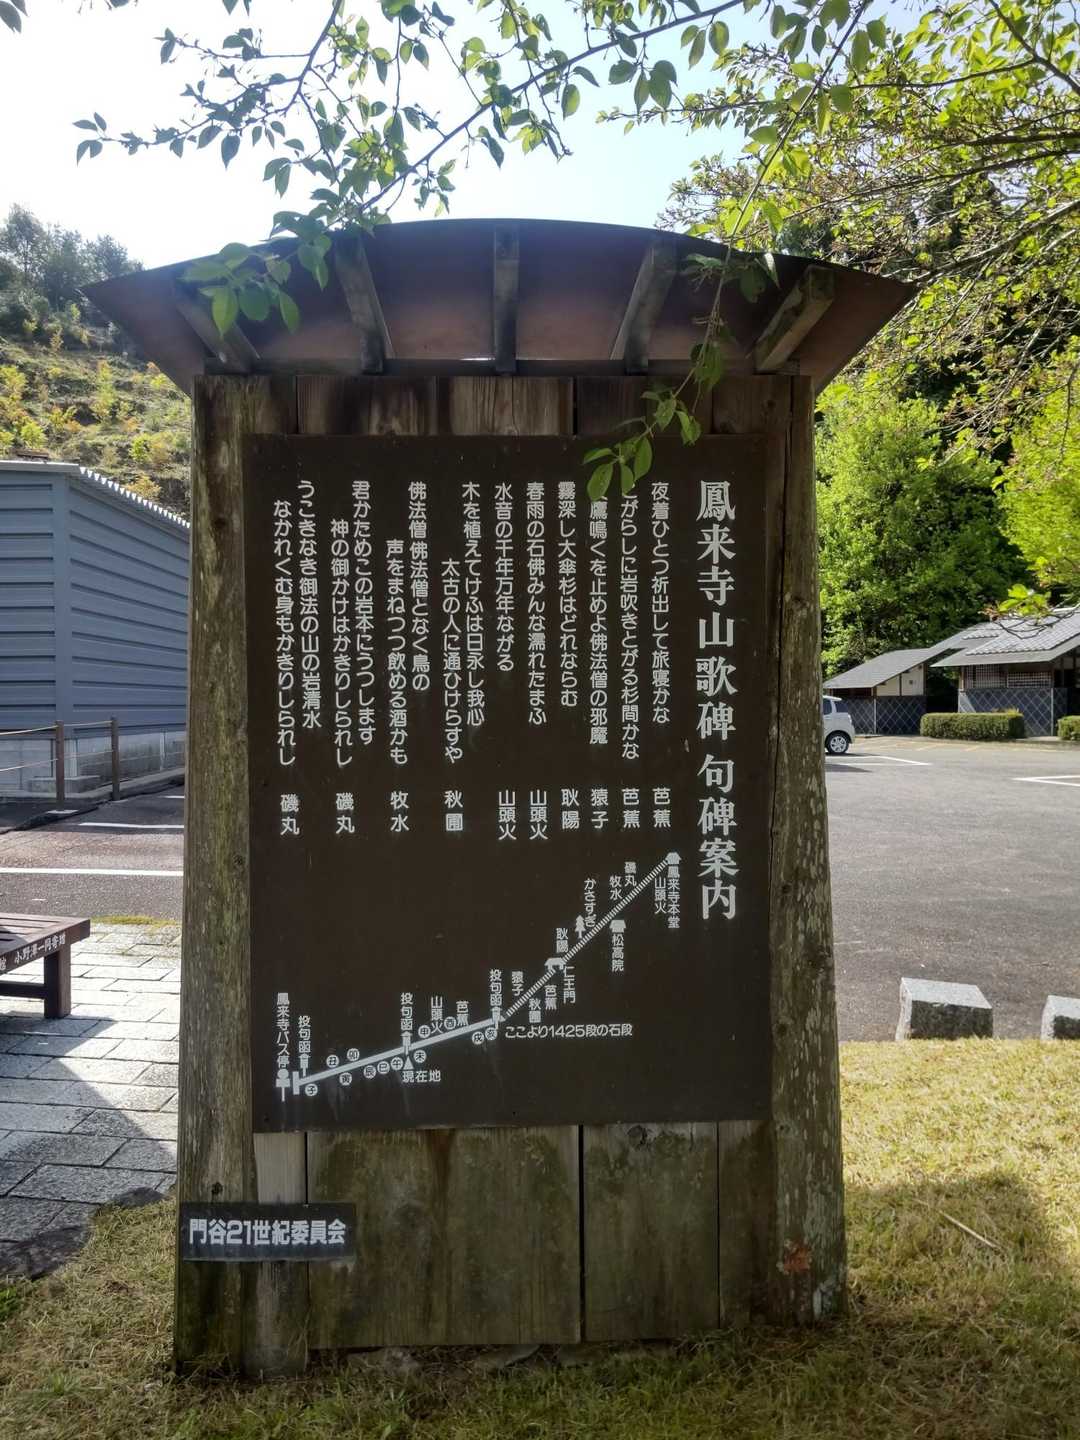 鳳来寺山歌碑 句碑案内
夜着ひとつ祈出して旅寝かな 芭蕉
こがらしに岩吹きとがる杉間かな 芭蕉
鷹鳴くを止めよ佛法僧の邪魔 猿子
霧深し大傘杉はどれならむ 耿陽
春雨の石佛みんな濡れたまふ 山頭火
水音の千年万年ながる 山頭火
木を植えてけふは日永し我心
太古の人に通ひけらすや 秋圃
佛法僧佛法僧となく鳥の
声をまねつつ飲める酒かも 牧水
君かためこの岩本にうつします
神の御かけはかきりしられし 磯丸
うこきなき御法の山の岩清水
なかれくむ身もかきりしられし 磯丸
鳳来寺本堂
山頭火
磯丸
牧水
かさすぎ
松高院
耿陽
仁王門
芭蕉
秋圃
猿子
投句函
ここより1425段の石段
芭蕉
山頭火
投句函
現在地
投句函
鳳来寺バス停
子
丑
寅
卯
辰
巳
午
未
申
酉
戌
亥
門谷21世紀委員会
小野澤一同寄贈